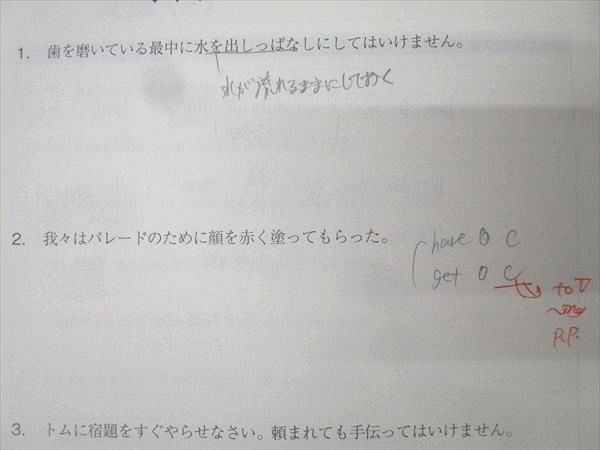 1. 歯を磨いている最中に水を出しっぱなしにしてはいけません。
水が流れるままにしておく
2. 我々はパレードのために顔を赤く塗ってもらった。
have O C
get O C
to V
~ing
P.P.
3. トムに宿題をすぐやらせなさい。頼まれても手伝ってはいけません。